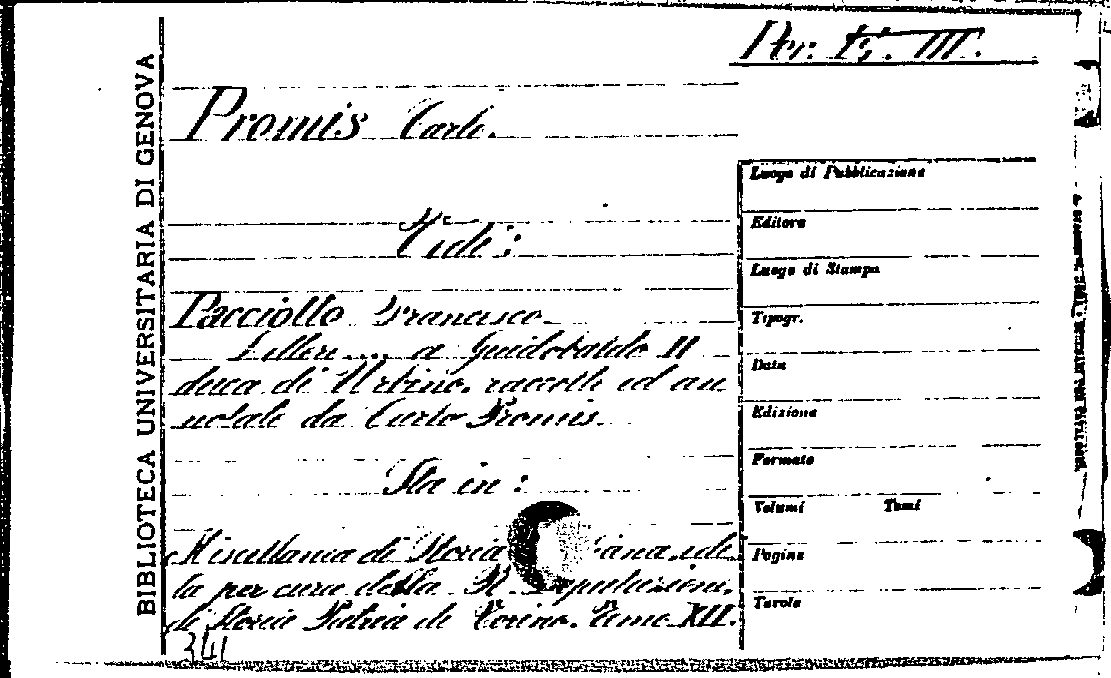 Per. III.
BIBLIOTECA UNIVERSITARIA DI GENOVA
Promis Carlo.
Vedi:
Pacciotto Francesco
Lettere .... a Guidobaldo II
duca di Urbino, raccolte ed an
notate da Carlo Promis.
Sta in:
Miscellanea di Storia edi
ta per cura della R. Deputazione
di Storia Patria di Torino. Tomo XII.
341
Luogo di Pubblicazione
Editore
Luogo di Stampa
Tipogr.
Data
Edizione
Formato
Volumi Tomi
Pagine
Tavole